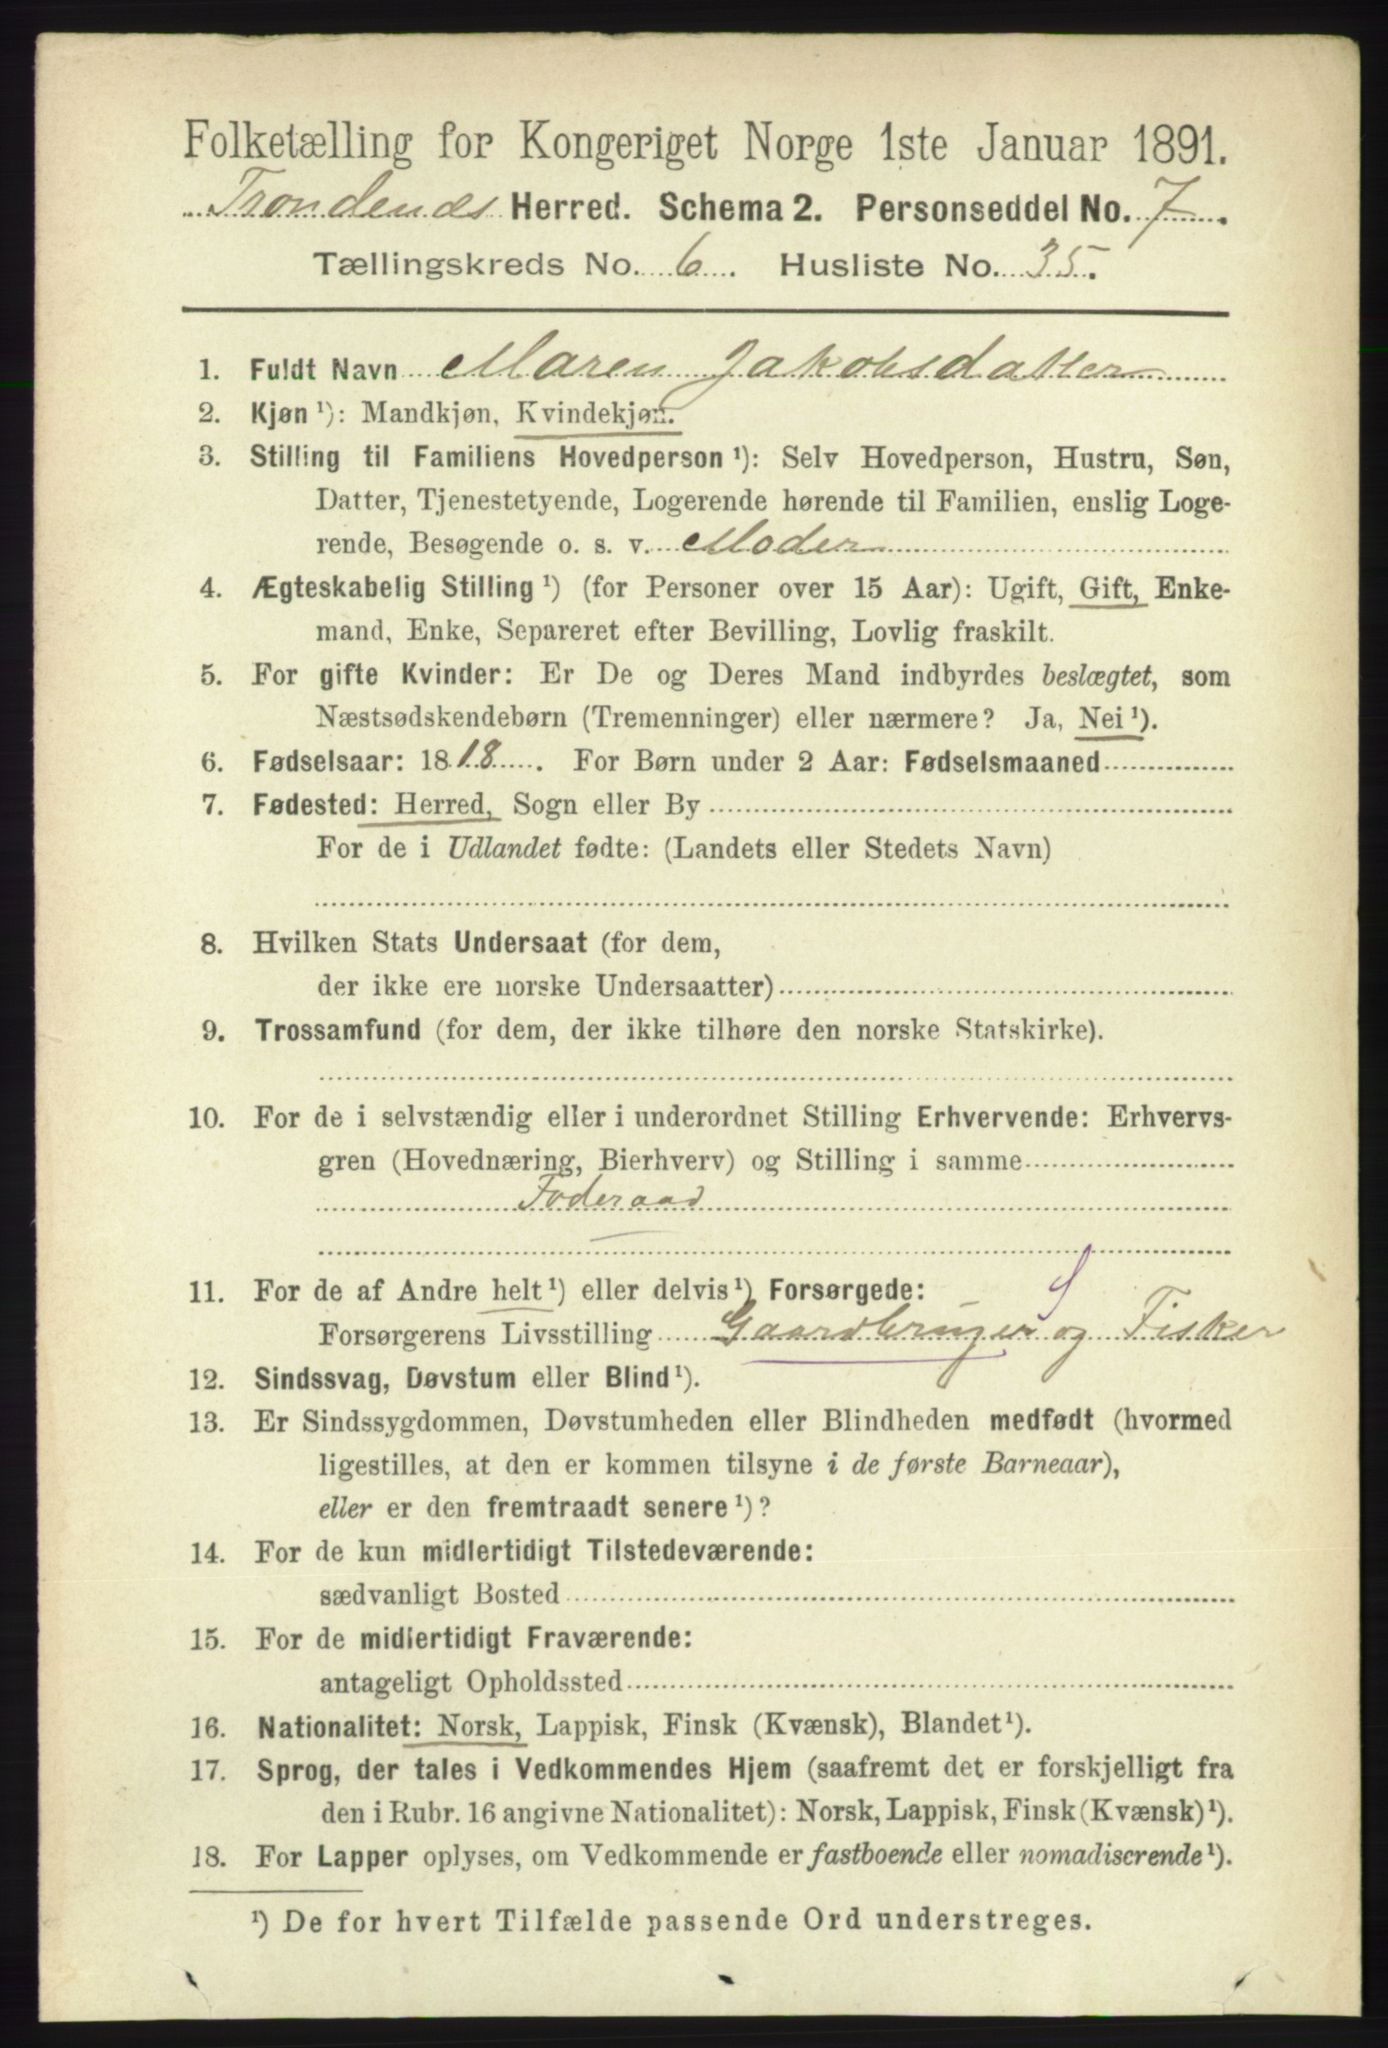 Folketælling for Kongeriget Norge 1ste Januar 1891.
Trondenæs Herred. Schema 2. Personseddel No. 7.
Tællingskreds No. 6. Husliste No. 35.
1. Fuldt Navn Maren Jakobsdatter
2. Kjøn ¹): Mandkjøn, Kvindekjøn.
3. Stilling til Familiens Hovedperson ¹): Selv Hovedperson, Hustru, Søn,
Datter, Tjenestetyende, Logerende hørende til Familien, enslig Loge-
rende, Besøgende o. s. v. Moder
4. Ægteskabelig Stilling ¹) (for Personer over 15 Aar): Ugift, Gift, Enke-
mand, Enke, Separeret efter Bevilling, Lovlig fraskilt.
5. For gifte Kvinder: Er De og Deres Mand indbyrdes beslægtet, som
Næstsødskendebørn (Tremenninger) eller nærmere? Ja, Nei ¹).
6. Fødselsaar: 1818. For Børn under 2 Aar: Fødselsmaaned
7. Fødested: Herred, Sogn eller By
For de i Udlandet fødte: (Landets eller Stedets Navn)
8. Hvilken Stats Undersaat (for dem,
der ikke ere norske Undersaatter)
9. Trossamfund (for dem, der ikke tilhøre den norske Statskirke).
10. For de i selvstændig eller i underordnet Stilling Erhvervende: Erhvervs-
gren (Hovednæring, Bierhverv) og Stilling i samme
Foderaad
11. For de af Andre helt ¹) eller delvis ¹) Forsørgede:
Forsørgerens Livsstilling Gaardbruger og Fisker
12. Sindssvag, Døvstum eller Blind ¹).
13. Er Sindssygdommen, Døvstumheden eller Blindheden medfødt (hvormed
ligestilles, at den er kommen tilsyne i de første Barneaar),
eller er den fremtraadt senere ¹)?
14. For de kun midlertidigt Tilstedeværende:
sædvanligt Bosted
15. For de midlertidigt Fraværende:
antageligt Opholdssted
16. Nationalitet: Norsk, Lappisk, Finsk (Kvænsk), Blandet ¹).
17. Sprog, der tales i Vedkommendes Hjem (saafremt det er forskjelligt fra
den i Rubr. 16 angivne Nationalitet): Norsk, Lappisk, Finsk (Kvænsk) ¹).
18. For Lapper oplyses, om Vedkommende er fastboende eller nomadiserende ¹).
¹) De for hvert Tilfælde passende Ord understreges.